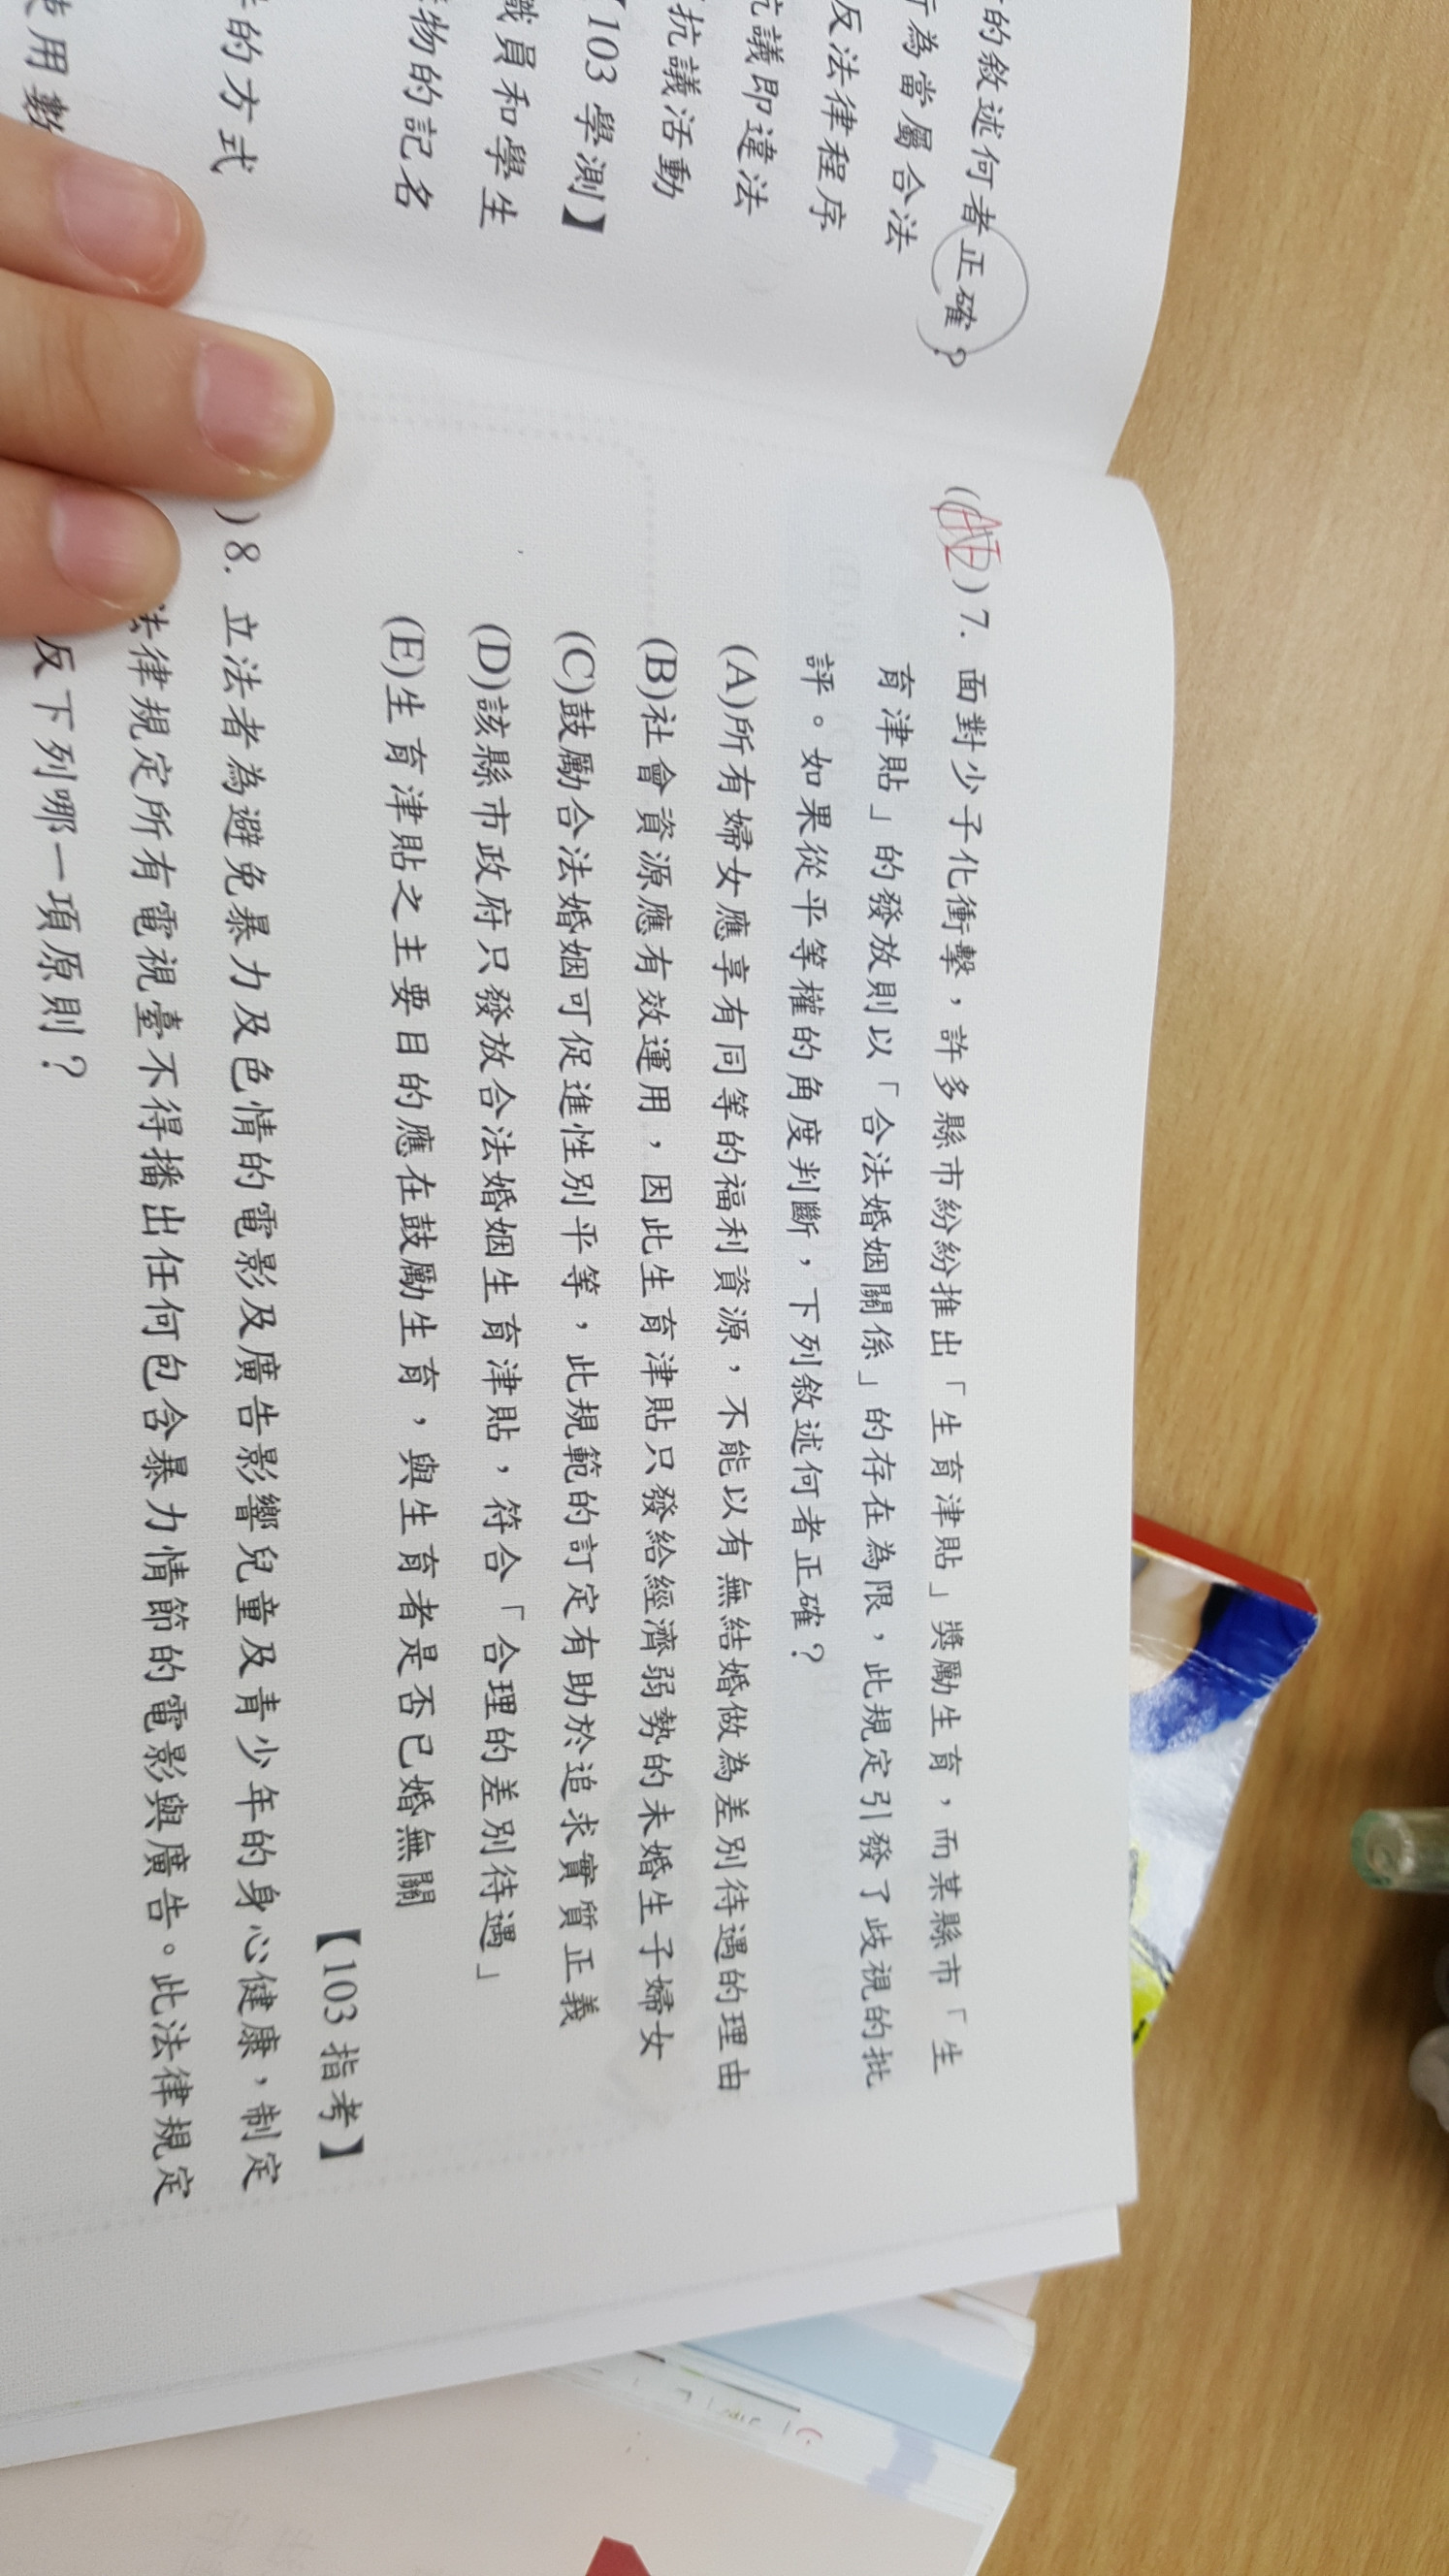 的敘述何者正確？
行為當屬合法
反法律程序
抗議即違法
抗議活動
【103 學測】
職員和學生
物的記名
的方式
使用數
(AE)7. 面對少子化衝擊，許多縣市紛紛推出「生育津貼」獎勵生育，而某縣市「生
育津貼」的發放則以「合法婚姻關係」的存在為限，此規定引發了歧視的批
評。如果從平等權的角度判斷，下列敘述何者正確？
(A)所有婦女應享有同等的福利資源，不能以有無結婚做為差別待遇的理由
(B)社會資源應有效運用，因此生育津貼只發給經濟弱勢的未婚生子婦女
(C)鼓勵合法婚姻可促進性別平等，此規範的訂定有助於追求實質正義
(D)該縣市政府只發放合法婚姻生育津貼，符合「合理的差別待遇」
(E)生育津貼之主要目的應在鼓勵生育，與生育者是否已婚無關
【103 指考】
)8. 立法者為避免暴力及色情的電影及廣告影響兒童及青少年的身心健康，制定
法律規定所有電視臺不得播出任何包含暴力情節的電影與廣告。此法律規定
反下列哪一項原則？